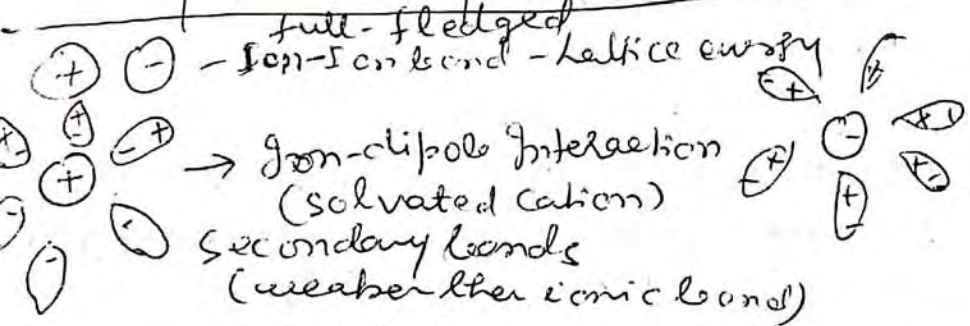 full-fledged
+ - - Ion-Ion bond - Lattice energy
→ Ion-dipole Interaction
(solvated cation)
secondary bonds
(weaker then ionic bond)